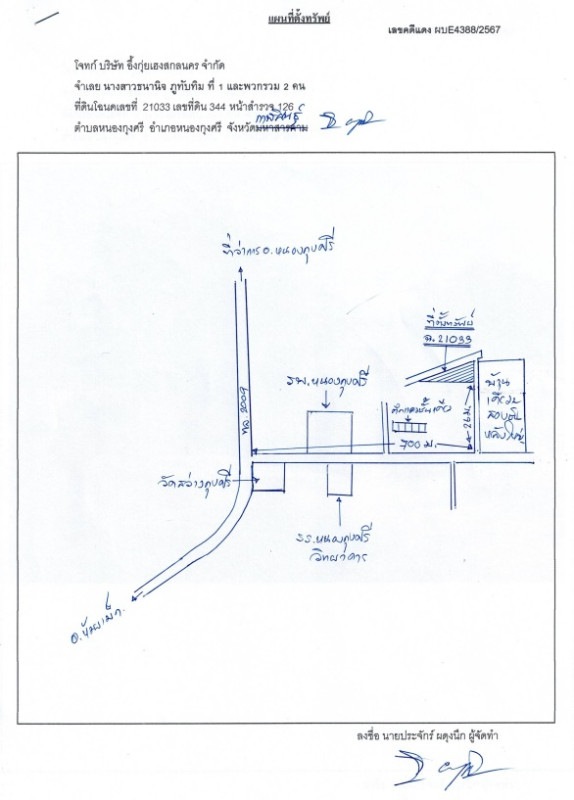 แผนที่ตั้งทรัพย์
เลขคดีแดง ผบE4388/2567
โจทก์ บริษัท อึ้งกุ่ยเฮงสกลนคร จำกัด
จำเลย นางสาวธนานิจ ภูทับทิม ที่ 1 และพวกรวม 2 คน
ที่ดินโฉนดเลขที่ 21033 เลขที่ดิน 344 หน้าสำรวจ 126
กาฬสินธุ์
ตำบลหนองกุงศรี อำเภอหนองกุงศรี จังหวัดมหาสารคาม
ที่ว่าการอ.หนองกุงศรี
ที่ตั้งทรัพย์
ฉ.21033
รพ.หนองกุงศรี
ทล.2009
26 ม.
บ้าน
สองชั้น
หลังใหญ่
700 ม.
วัดสว่างกุงศรี
รร.หนองกุงศรี
วิทยาคาร
อ.ห้วยเม็ก
ลงชื่อ นายประจักร์ ผดุงนึก ผู้จัดทำ